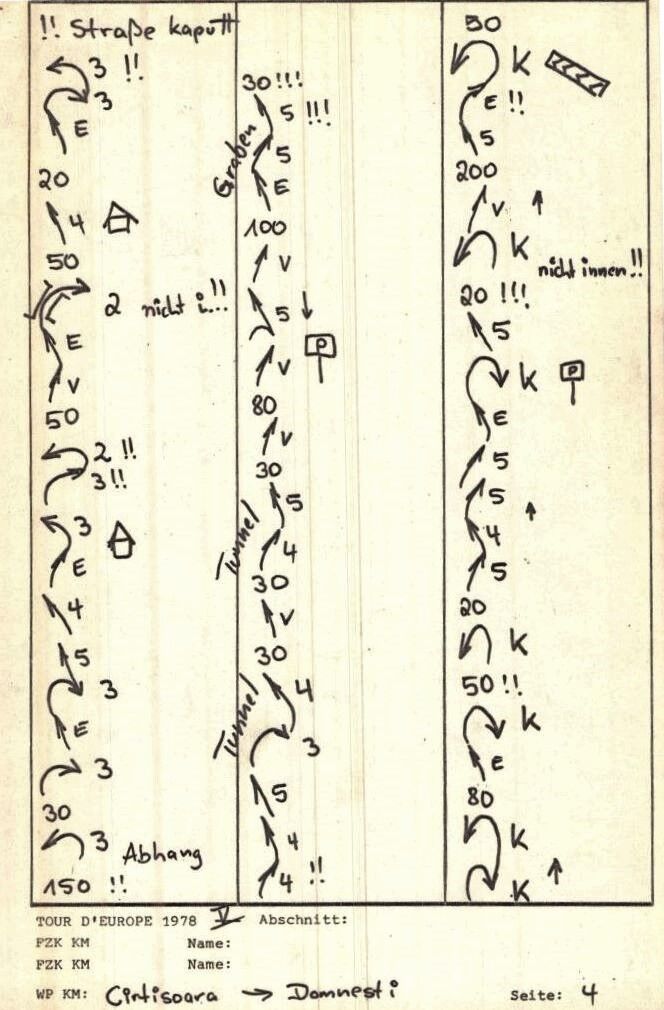 !! Straße kaputt
3 !!
3
E
20
4
50
2 nicht i..!!
E
V
50
2 !!
3 !!
3
E
4
5
3
E
3
30
3
Abhang
150 !!
30 !!!
5 !!!
Graben
5
E
100
V
5
P
V
80
V
30
5
Tunnel
4
30
V
30
4
Tunnel
3
5
4
4 !!
50
K
E !!
5
200
V
K
nicht innen!!
20 !!!
5
K
P
E
5
5
4
5
20
K
50 !!
K
E
80
K
K
TOUR D'EUROPE 1978 V Abschnitt:
FZK KM Name:
FZK KM Name:
WP KM: Cirtisoara → Domnesti Seite: 4